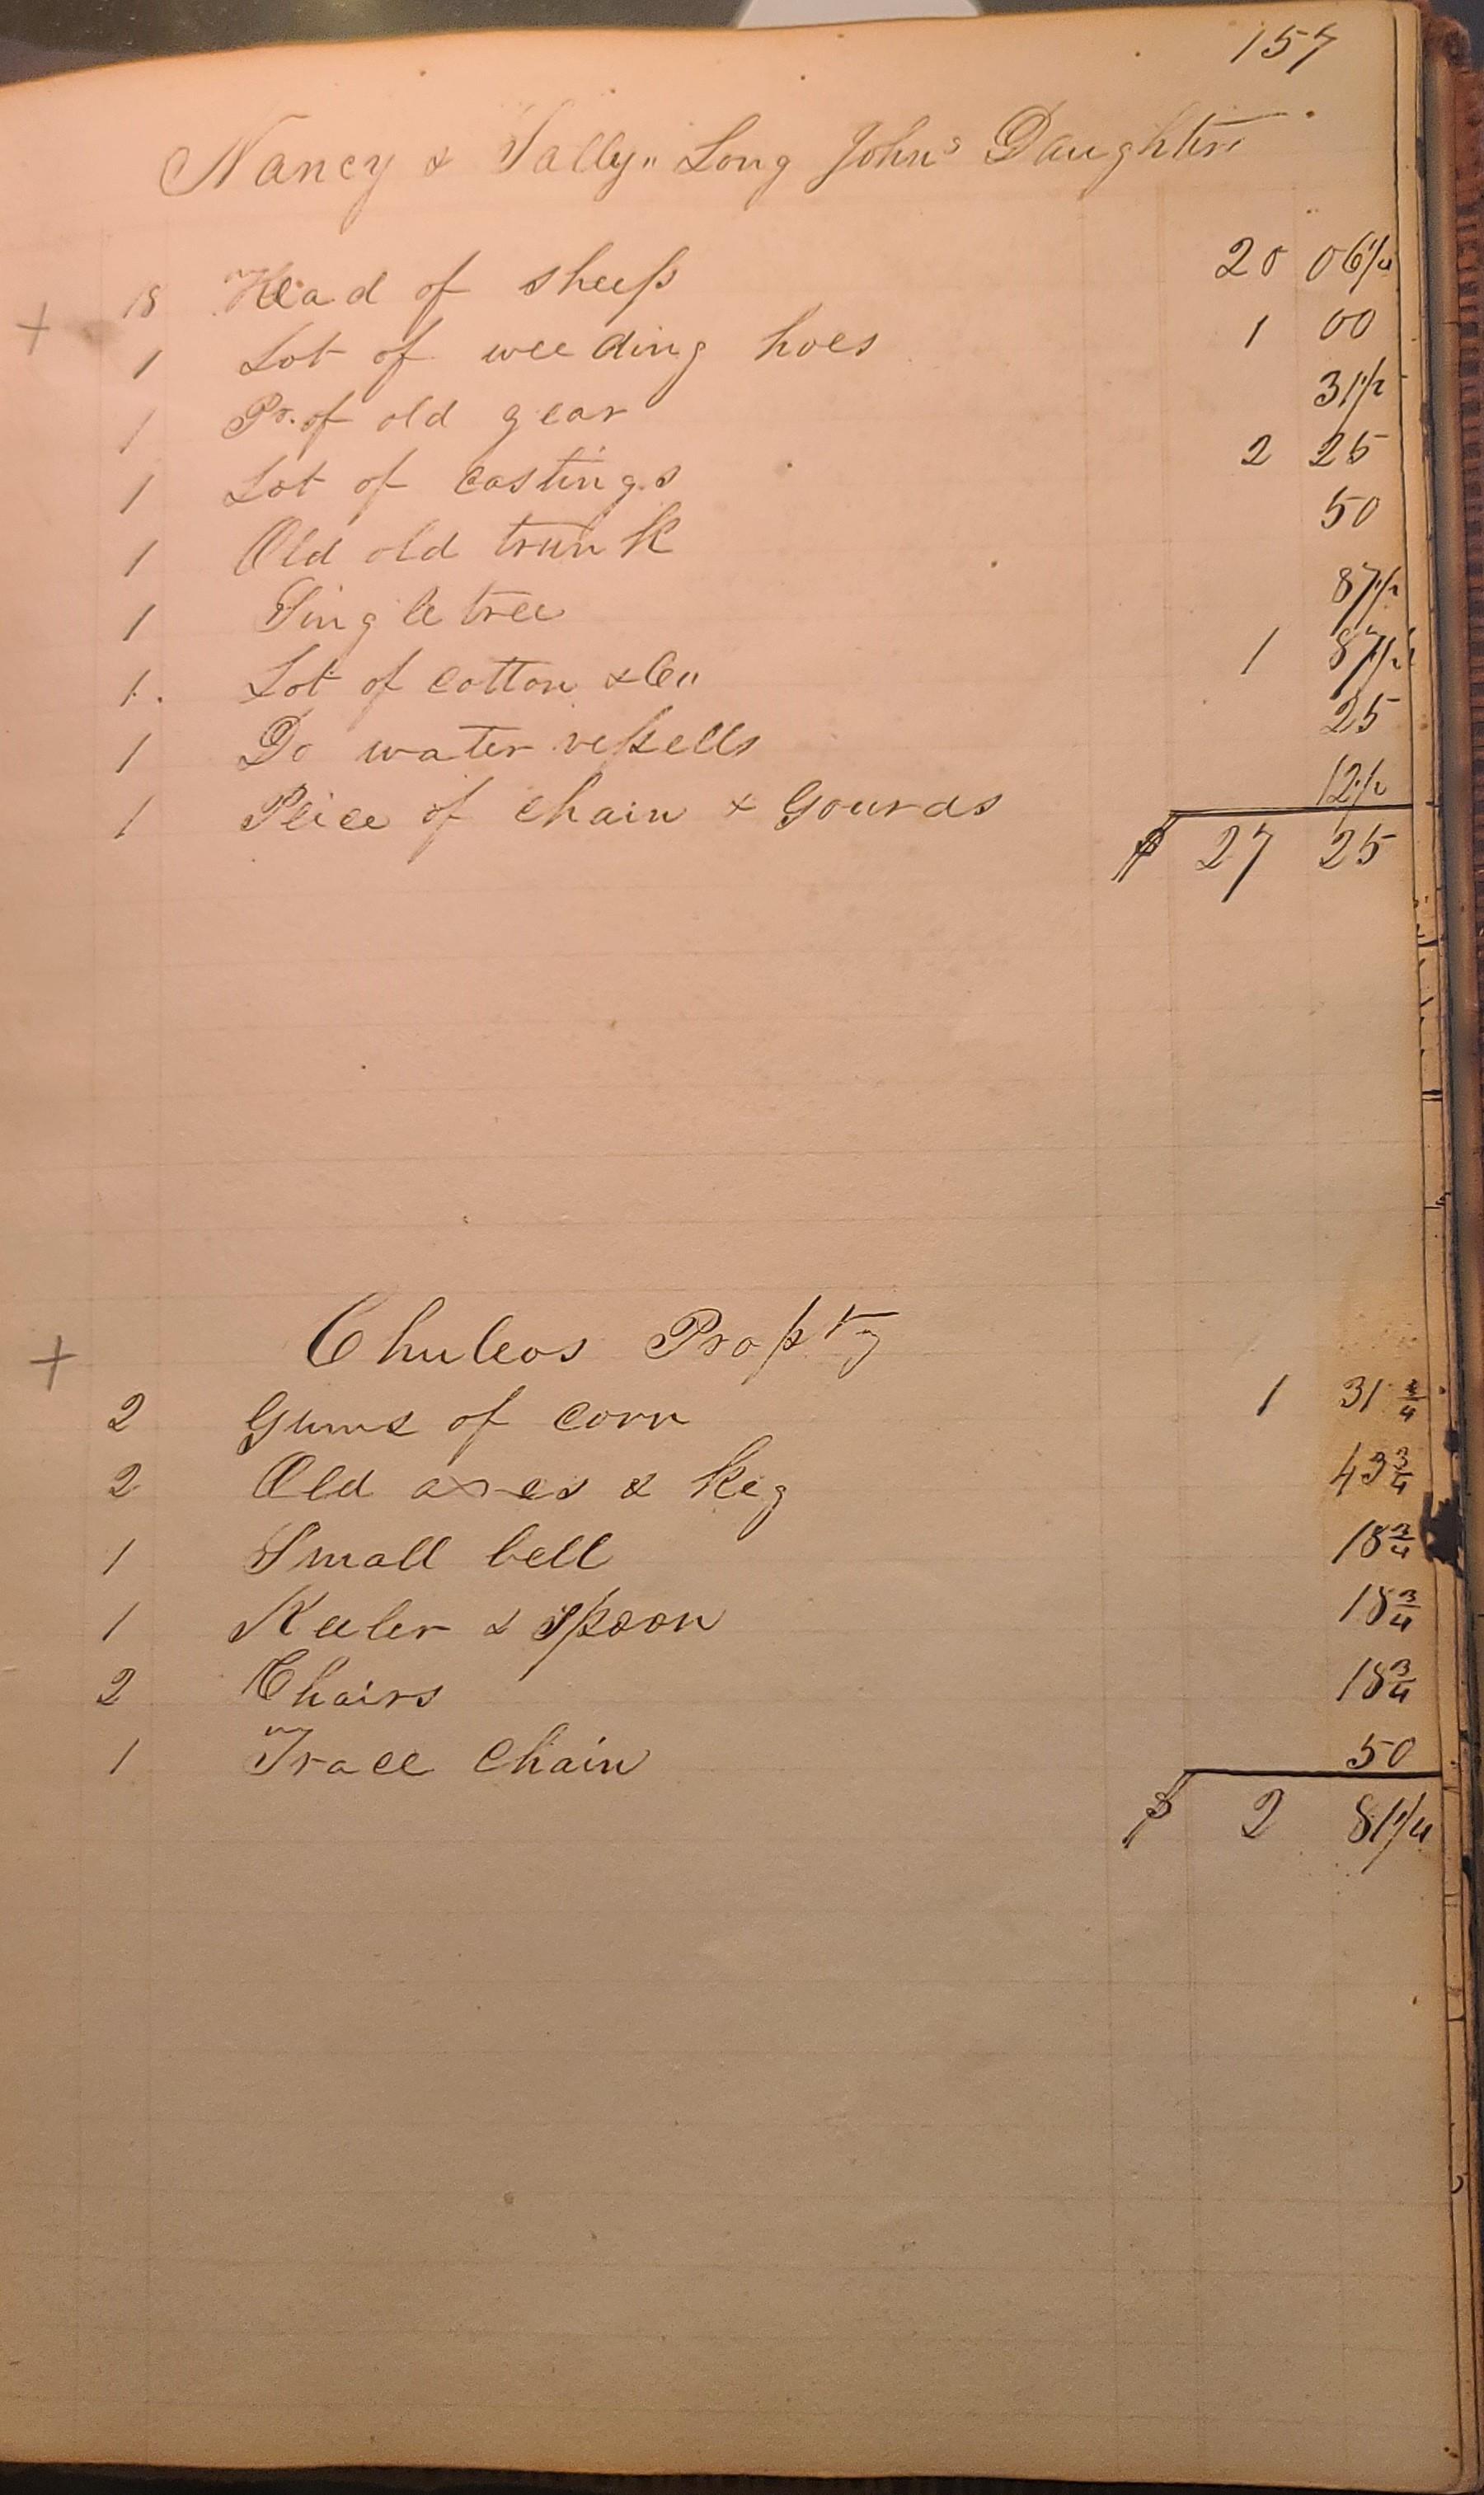 157
Nancy & Sally" Long John's Daughters
18 Head of sheep 20 06 1/4
1 Lot of weeding hoes 1 00
1 Pr. of old gear 31 1/2
1 Lot of castings 2 25
1 Old old trunk 50
1 Singletree 87 1/2
1. Lot of cotton &c" 1 87 1/2
1 Do water vessells 25
1 Peice of chain & Gourds 12 1/2
$ 27 25
Chuleos Propty
2 Gums of corn 1 31 1/4
2 Old axes & Keg 43 3/4
1 Small bell 18 3/4
1 Keeler & Spoon 18 3/4
2 Chairs 18 3/4
1 Trace Chain 50
$ 2 81 1/4